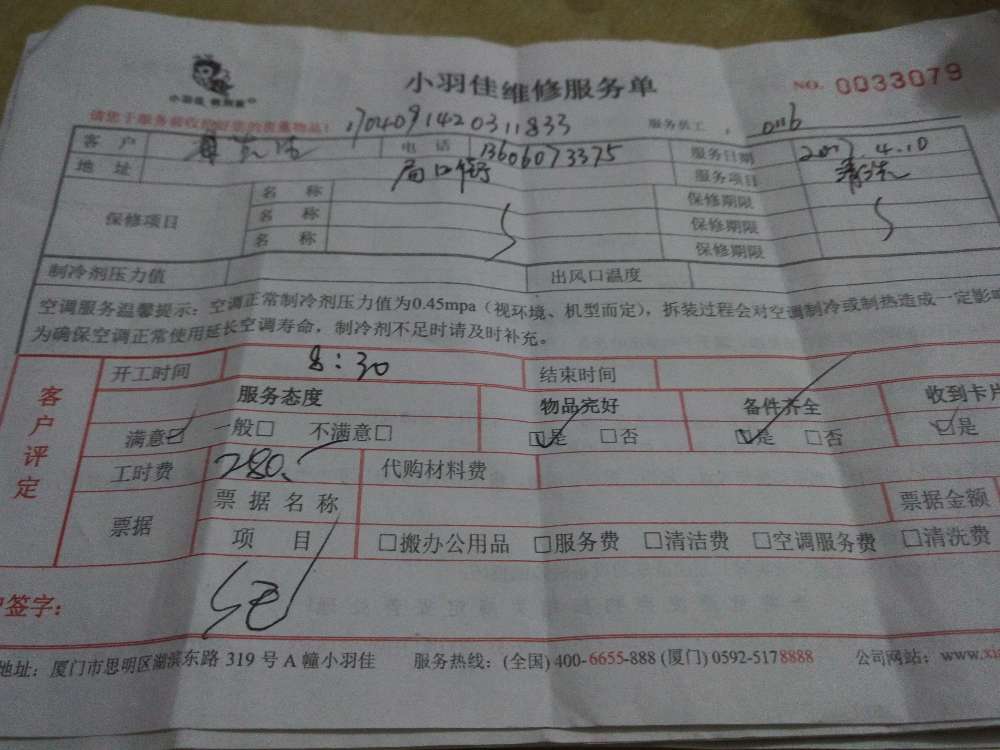 小羽佳维修服务单
NO. 0033079
小羽佳
请您于服务前收
贵重物品！ 170409142031833 服务员工： 0116
客 户 电 话 13606073375 服务日期 2017.4.10
地 址 局口街 服务项目 清洗
保修项目 名 称 保修期限
名 称 保修期限
名 称 保修期限
制冷剂压力值 出风口温度
空调服务温馨提示：空调正常制冷剂压力值为0.45mpa（视环境、机型而定），拆装过程会对空调制冷或制热造成一定影响
为确保空调正常使用延长空调寿命，制冷剂不足时请及时补充。
客户评定 开工时间 8：30 结束时间
服务态度 物品完好 备件齐全 收到卡片
满意☑ 一般□ 不满意□ ☑是 □否 ☑是 □否 ☑是
工时费 280. 代购材料费
票据 票据名称 票据金额
项 目 □搬办公用品 □服务费 □清洁费 □空调服务费 □清洗费
签字：
地址：厦门市思明区湖滨东路 319 号 A 幢小羽佳 服务热线：(全国) 400-6655-888 (厦门) 0592-5178888 公司网站：www.xi